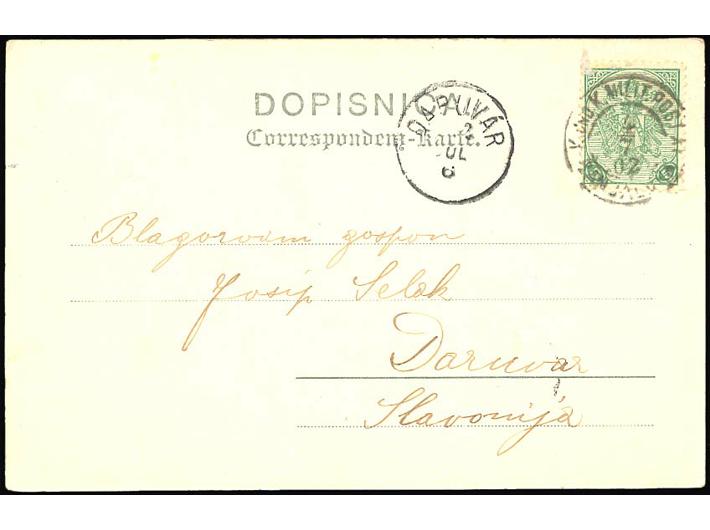 DOPISNICA.
Correspondenz-Karte.
DARUVÁR
K.UND K. MILIT. POST
02
5 5
Blagorodni gospon
Josip Selak
Daruvar
Slavonija